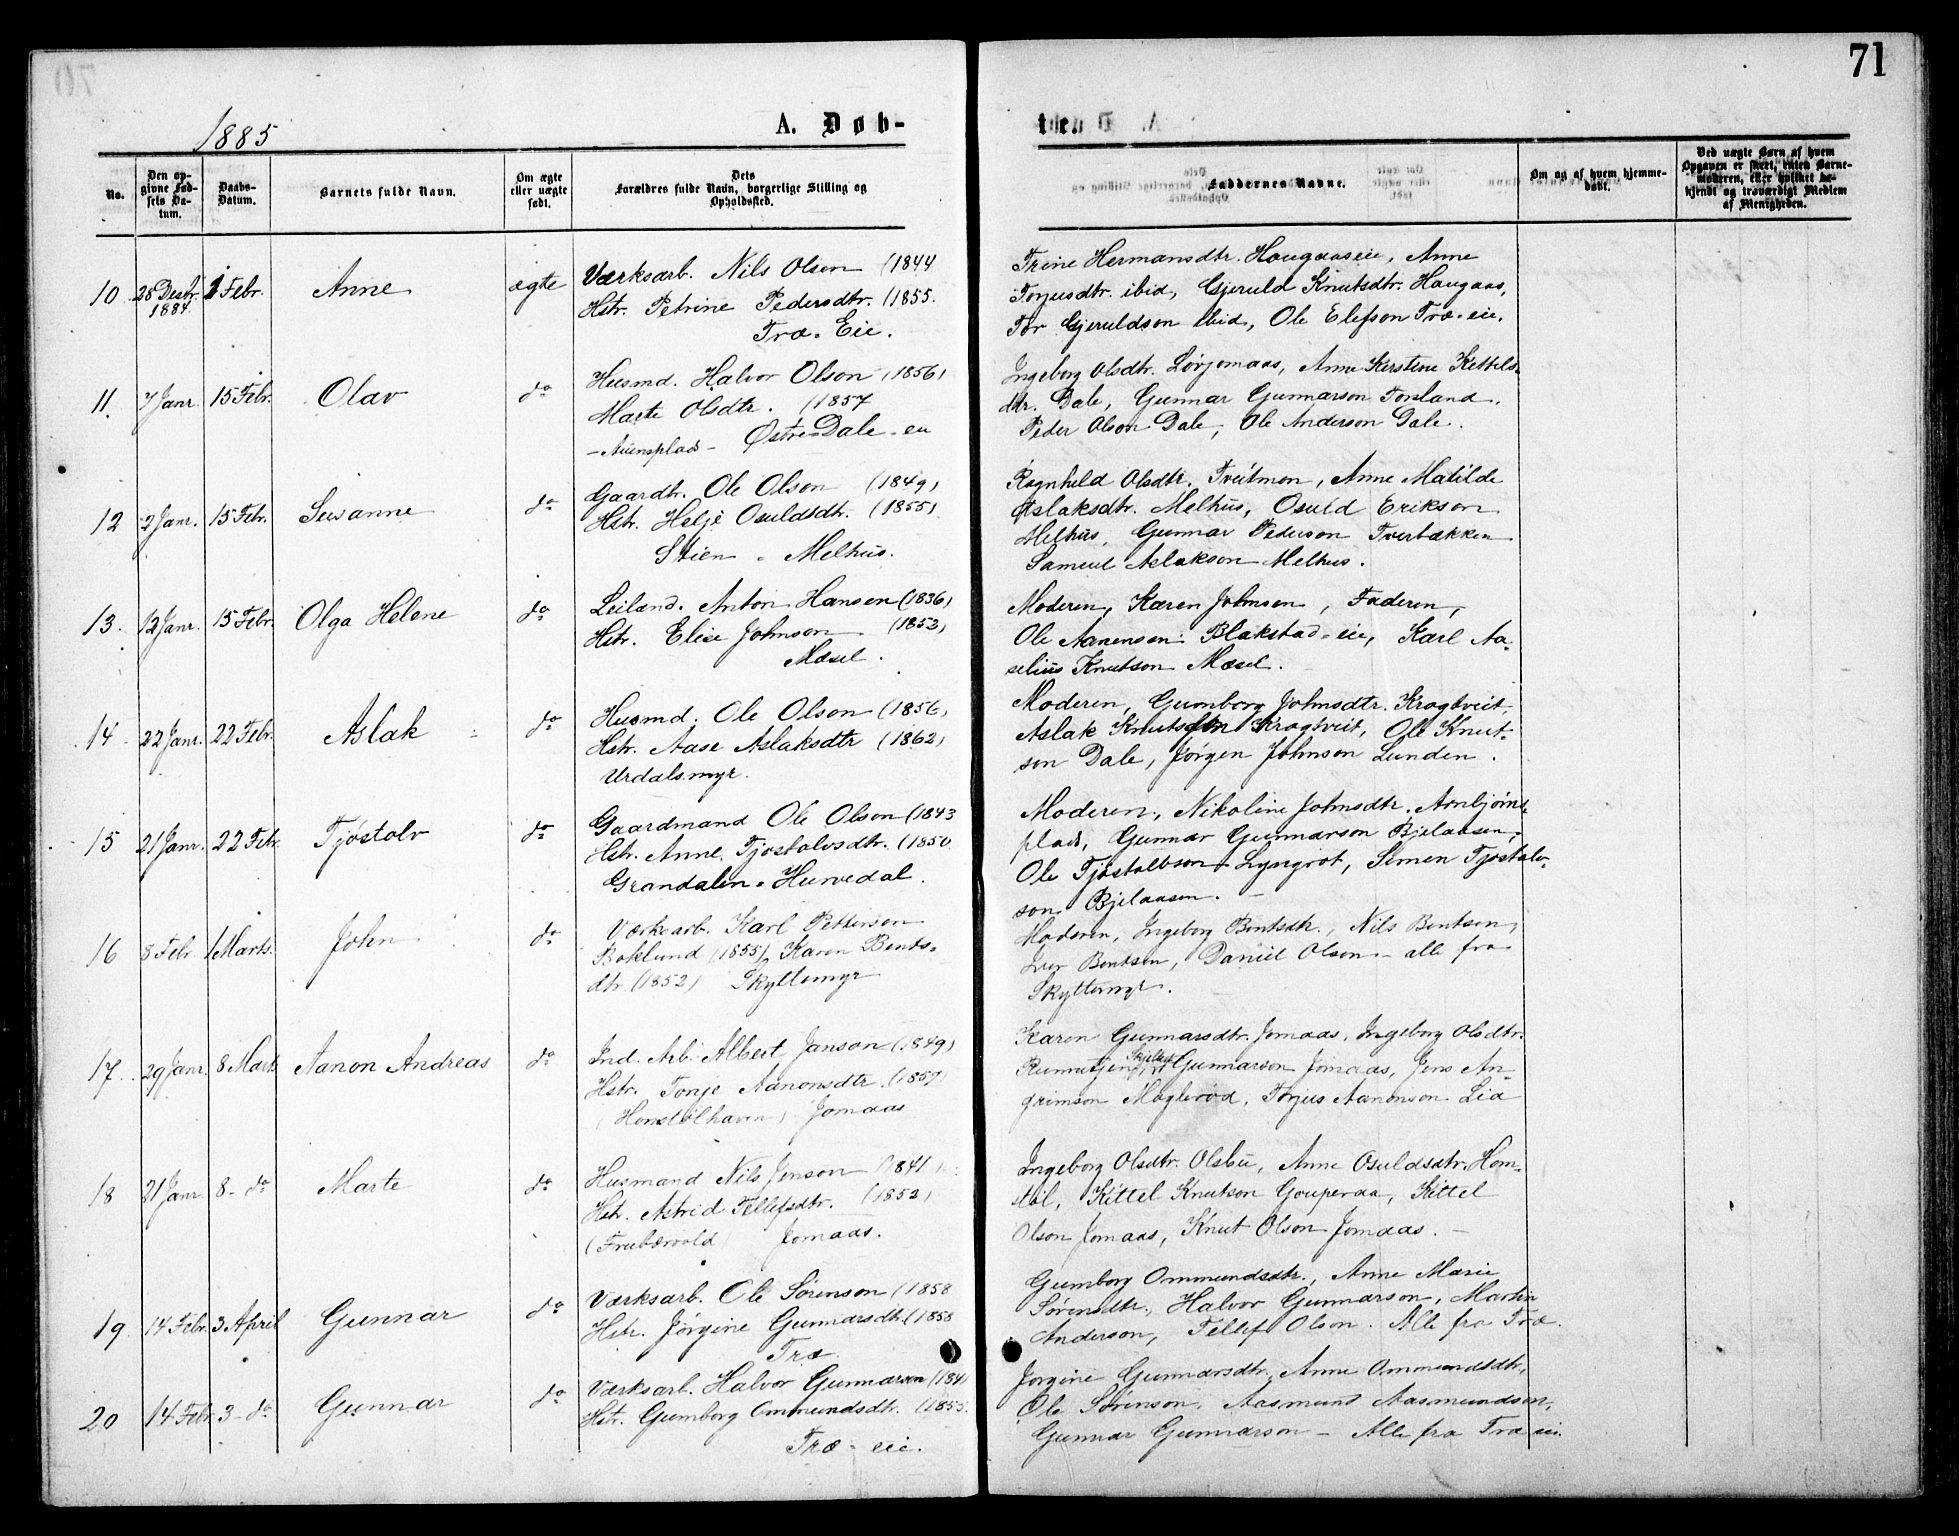 71
1885
A. Døb-
ten
No.
Den op-
givne Fød-
sels Da-
tum.
Daabs-
Datum.
Barnets fulde Navn.
Om ægte
eller uægte
født.
Dets
Forældres fulde Navn, borgerlige Stilling og
Opholdssted.
Faddernes Navne.
Om og af hvem hjemme-
døbt.
Ved uægte Børn af hvem
Opgaven er skeet, enten Barne-
moderen, eller hvilket be-
kjendt og troværdigt Medlem
af Menigheden.
10 28 Decbr. 1884 1 Febr. Anne ægte
Værksarb. Nils Olsen (1844
Hstr. Petrine Pedersdtr. (1855.
Træ-Eie.
Trine Hermansdtr. Haugaaseie, Anne
Torjusdtr. ibid, Gjeruld Knutsdtr. Haugaas,
Tor Gjeruldson ibid, Ole Elefson Træ-eie.
11. 7 Janr. 15 Febr. Olav do
Husmd. Halvor Olson (1856)
Marte Olsdtr. (1857
Østre Dale-en
Ingeborg Olsdtr. Lørjomaas, Anne Kirstine Kettels-
dtr. Dale, Gunnar Gunnarson Torsland.
Peder Olson Dale, Ole Anderson Dale.
12 2 Janr. 15 Febr. Susanne do
Gaardbr. Ole Olson (1849)
Hstr. Helje Osuldsdtr. (1855)
Stien - Melhus.
Ragnhild Olsdtr. Tveitmon, Anne Matilde
Aslaksdtr. Melhus, Osuld Erikson
Melhus, Gunnar Pederson Tverbækken
Samuel Aslakson Melhus.
13. 12 Janr. 15 Febr. Olga Helene do
Leilænd. Anton Hansen (1836)
Hstr. Elise Johnson (1853)
Mæsel.
Moderen, Karen Johnsen, Faderen,
Ole Aanensen Blakstad-eie, Karl Aa-
selius Knutson Mæsel.
14 22 Janr. 22 Febr. Aslak do
Husmd. Ole Olson (1856)
Hstr. Aase Aslaksdtr (1862)
Urdalsmyr.
Moderen, Gumborg Johnsdtr. Krogtveit,
Aslak Knutson Krogtveit, Ole Knut-
son Dale, Jørgen Johnson Lunden.
15 21 Janr. 22 Febr. Tjøstolv do
Gaardmand Ole Olson (1843
Hstr. Anne Tjøstolvsdtr. (1850
Grandalen - Hurvedal.
Moderen, Nikoline Johnsdtr. Arnbjørns-
plads, Gunnar Gunnarson Bjelaasen,
Ole Tjøstolvson Lyngrot, Simen Tjøstolv-
son Bjelaasen. -
16 8 Febr. 1 Marts. John do
Værksarb. Karl Petterson
Boklund (1855), Karen Bents-
dtr. (1852) Skyttemyr
Moderen, Ingeborg Bentsdtr., Nils Bentsen,
Iver Bentsen, Daniel Olsen - alle fra
Skyttemyr.
17. 29 Janr. 8 Mart. Aanon Andreas do
Ind. Arb. Albert Janson (1849)
Hstr. Tonje Aanonsdtr. (1859)
Jomaas
Karen Gunnarsdtr. Jomaas, Ingeborg Olsdtr.
Gunnarson Jomaas, Jens An-
grimson Møglerød, Torjus Aanonson Lia
18 21 Janr. 8 - do Marte do
Husmand Nils Jenson (1841)
Hstr. Astrid Tellefsdtr. (1852)
Jomaas.
Ingeborg Olsdtr. Olsbu, Anne Osuldsdtr. Hom-
støl, Kittel Knutson Gouperaa, Kittel
Olson Jomaas, Knut Olson Jomaas. -
19 14 Febr. 3 April Gunnar do
Værksarb. Ole Sørenson (1858
Hstr. Jørgine Gunnarsdtr. (1858
Træ.
Gumborg Ommundsdtr., Anne Marie
Sørensdtr., Halvor Gunnarson, Martin
Anderson, Tellef Olson. Alle fra Træ.
20 14 Febr. 3 - do Gunnar do
Værksarb. Halvor Gunnarson (184
Hstr. Gumborg Ommundsdtr. (1855.
Træ - eie.
Jørgine Gunnarsdtr. Anne Ommundsdtr.,
Ole Sørenson, Aasmund Aasmundson,
Gunnar Gunnarson - Alle fra Træ eie.